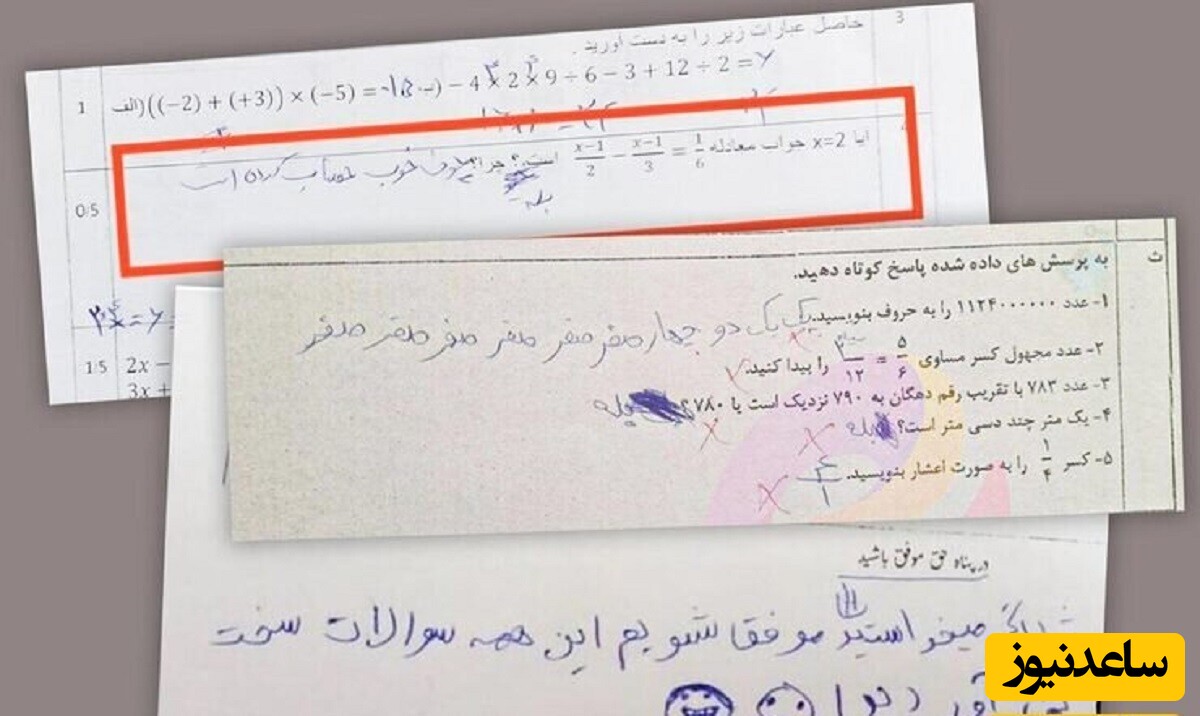 3
حاصل عبارات زیر را به دست آورید .
1
الف) ((−2) + (+3)) × (−5) = -15
ب) − 4 × 2 × 9 ÷ 6 − 3 + 12 ÷ 2 =
0/5
آیا x=2 جواب معادله x−1/2 − x−1/3 = 1/6 است؟ چرا؟ خوب حساب کرده است
بله
1/5
2x −
3x +
ث
به پرسش های داده شده پاسخ کوتاه دهید.
۱- عدد ۱۱۲۴۰۰۰۰۰۰ را به حروف بنویسید. یک یک دو چهار صفر صفر صفر صفر صفر صفر
۲- عدد مجهول کسر مساوی ۵/۶ = /۱۲ را پیدا کنید.
۳- عدد ۷۸۳ با تقریب رقم دهگان به ۷۹۰ نزدیک است یا ۷۸۰؟ بله
۴- یک متر چند دسی متر است؟ بله
۵- کسر ۱/۴ را به صورت اعشار بنویسید. ۴/۱
در پناه حق موفق باشید
شما اگر میخواستید ما موفق شویم این همه سوالات سخت
ساعدنیوز